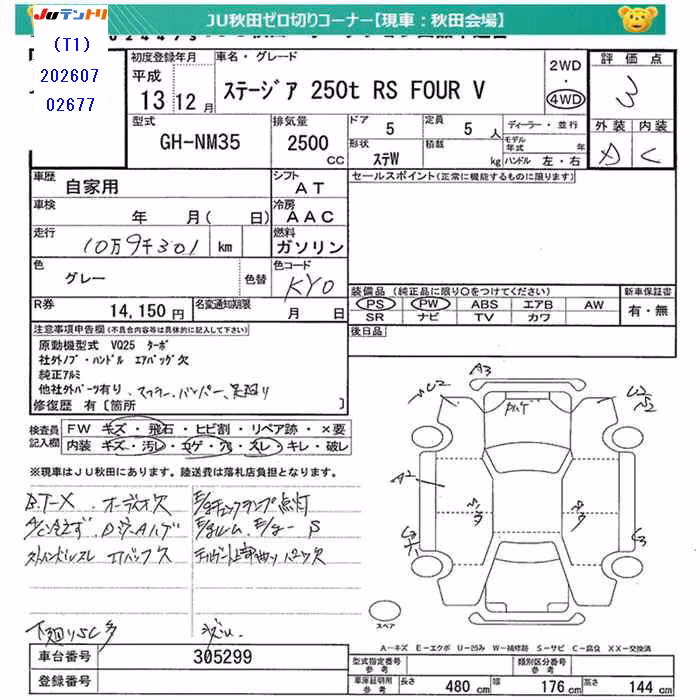 Juテントリ
JU秋田ゼロ切りコーナー【現車：秋田会場】
(T1)
202607
02677
初度登録年月
平成
13 12月
車名・グレード
ステージア 250t RS FOUR V
2WD
・
4WD
評価点
3
型式
GH-NM35
排気量
2500 CC
ドア 5
定員 5 人
形状 ステW
積載 kg
ディーラー・並行
モデル年式 年
ハンドル 左・右
外装 内装
D C
車歴
自家用
シフト
AT
セールスポイント(正常に機能するものに限ります)
車検
年 月( 日)
冷房
AAC
走行
10万9千301 km
燃料
ガソリン
色
グレー
色替
色コード
KY0
R券
14,150円
名変通知期限
月 日
装備品 (純正品に限り○をつけてください)
PS PW ABS エアB AW
SR ナビ TV カワ
新車保証書
有・無
後日品
注意事項申告欄(不具合内容等は具体的に記入して下さい)
原動機型式 VQ25 ターボ
社外ノブ・ハンドル エアバッグ欠
純正アルミ
他社外パーツ有り、マフラー、バンパー、足廻り
修復歴 有［箇所 ］
検査員記入欄
FW キズ・飛石・ヒビ割・リペア跡・×要
内装 キズ・汚レ・コゲ・穴・スレ・キレ・破レ
※現車はJU秋田にあります。陸送費は落札店負担となります。
B.T-X. オーディオ欠
E/gチェックランプ点灯
A/C冷えず
ステハンドルスレ エアバッグ欠
下廻りSC多
A3
A2
スペア
A－キズ E－エクボ U－凹み W－補修跡 S－サビ C－腐食 XX－交換済
車台番号 305299
登録番号
型式指定番号 参考
類別区分番号 参考
車庫証明用 参考
長さ 480 cm
幅 176 cm
高さ 144 cm